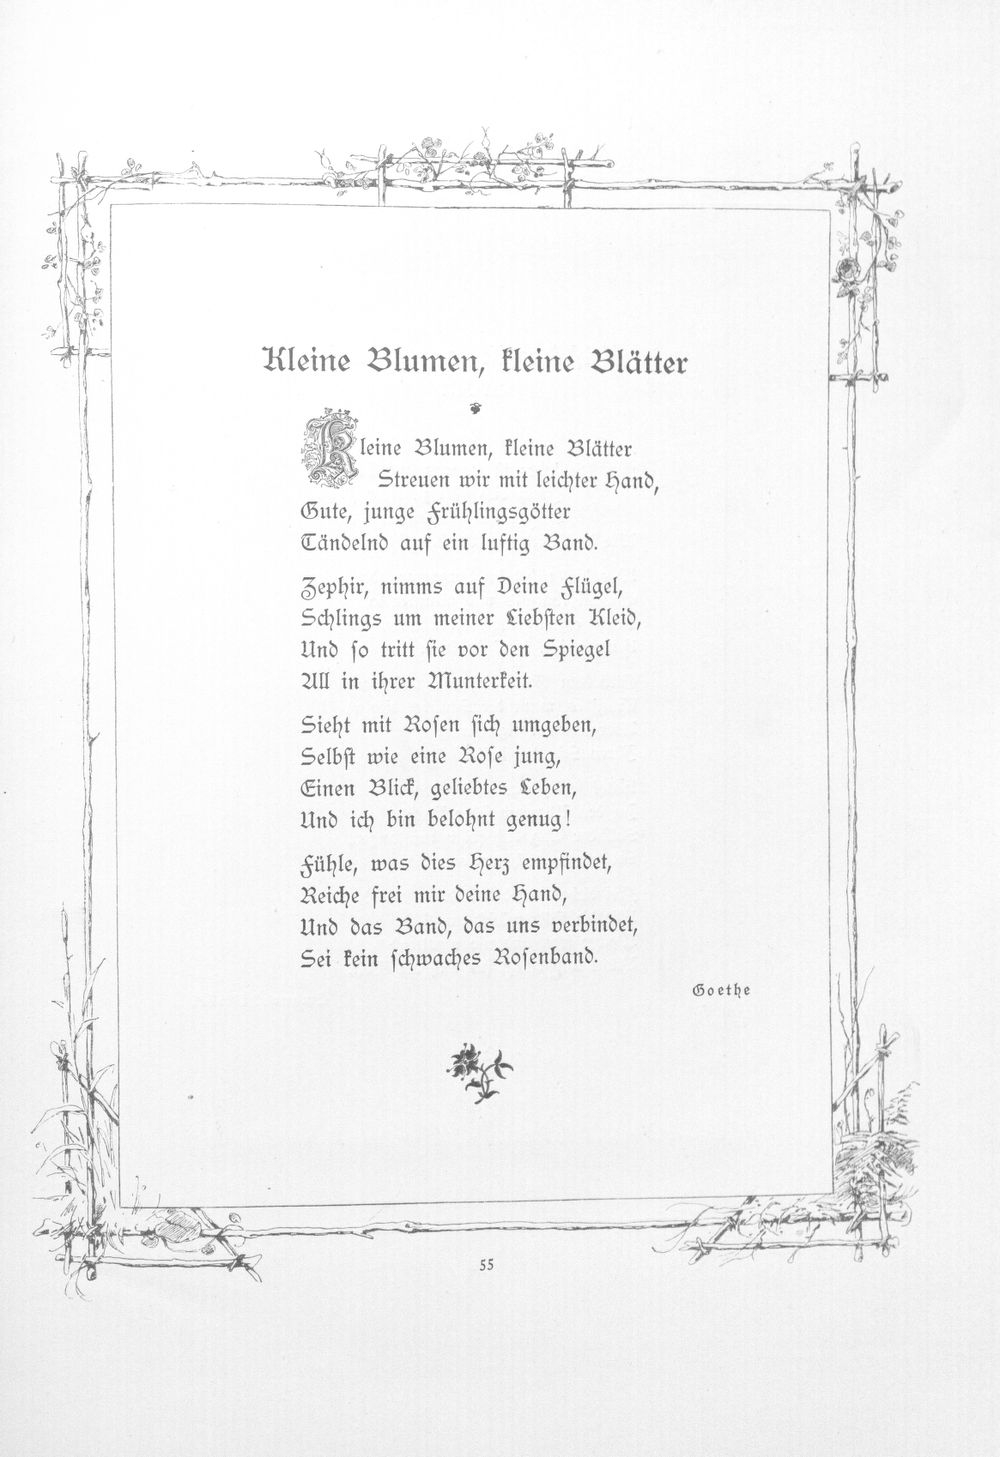 Kleine Blumen, kleine Blätter
Kleine Blumen, kleine Blätter
Streuen wir mit leichter Hand,
Gute, junge Frühlingsgötter
Tändelnd auf ein luftig Band.
Zephir, nimms auf Deine Flügel,
Schlings um meiner Liebsten Kleid,
Und so tritt sie vor den Spiegel
All in ihrer Munterkeit.
Sieht mit Rosen sich umgeben,
Selbst wie eine Rose jung,
Einen Blick, geliebtes Leben,
Und ich bin belohnt genug!
Fühle, was dies Herz empfindet,
Reiche frei mir deine Hand,
Und das Band, das uns verbindet,
Sei kein schwaches Rosenband.
Goethe
55